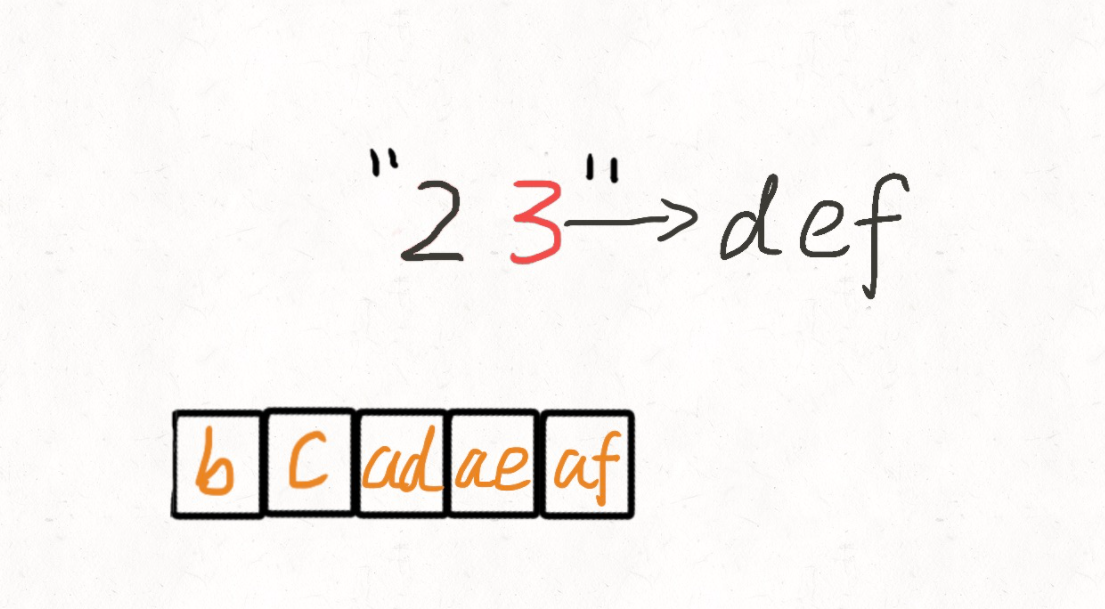 "23"→def
b c ad ae af